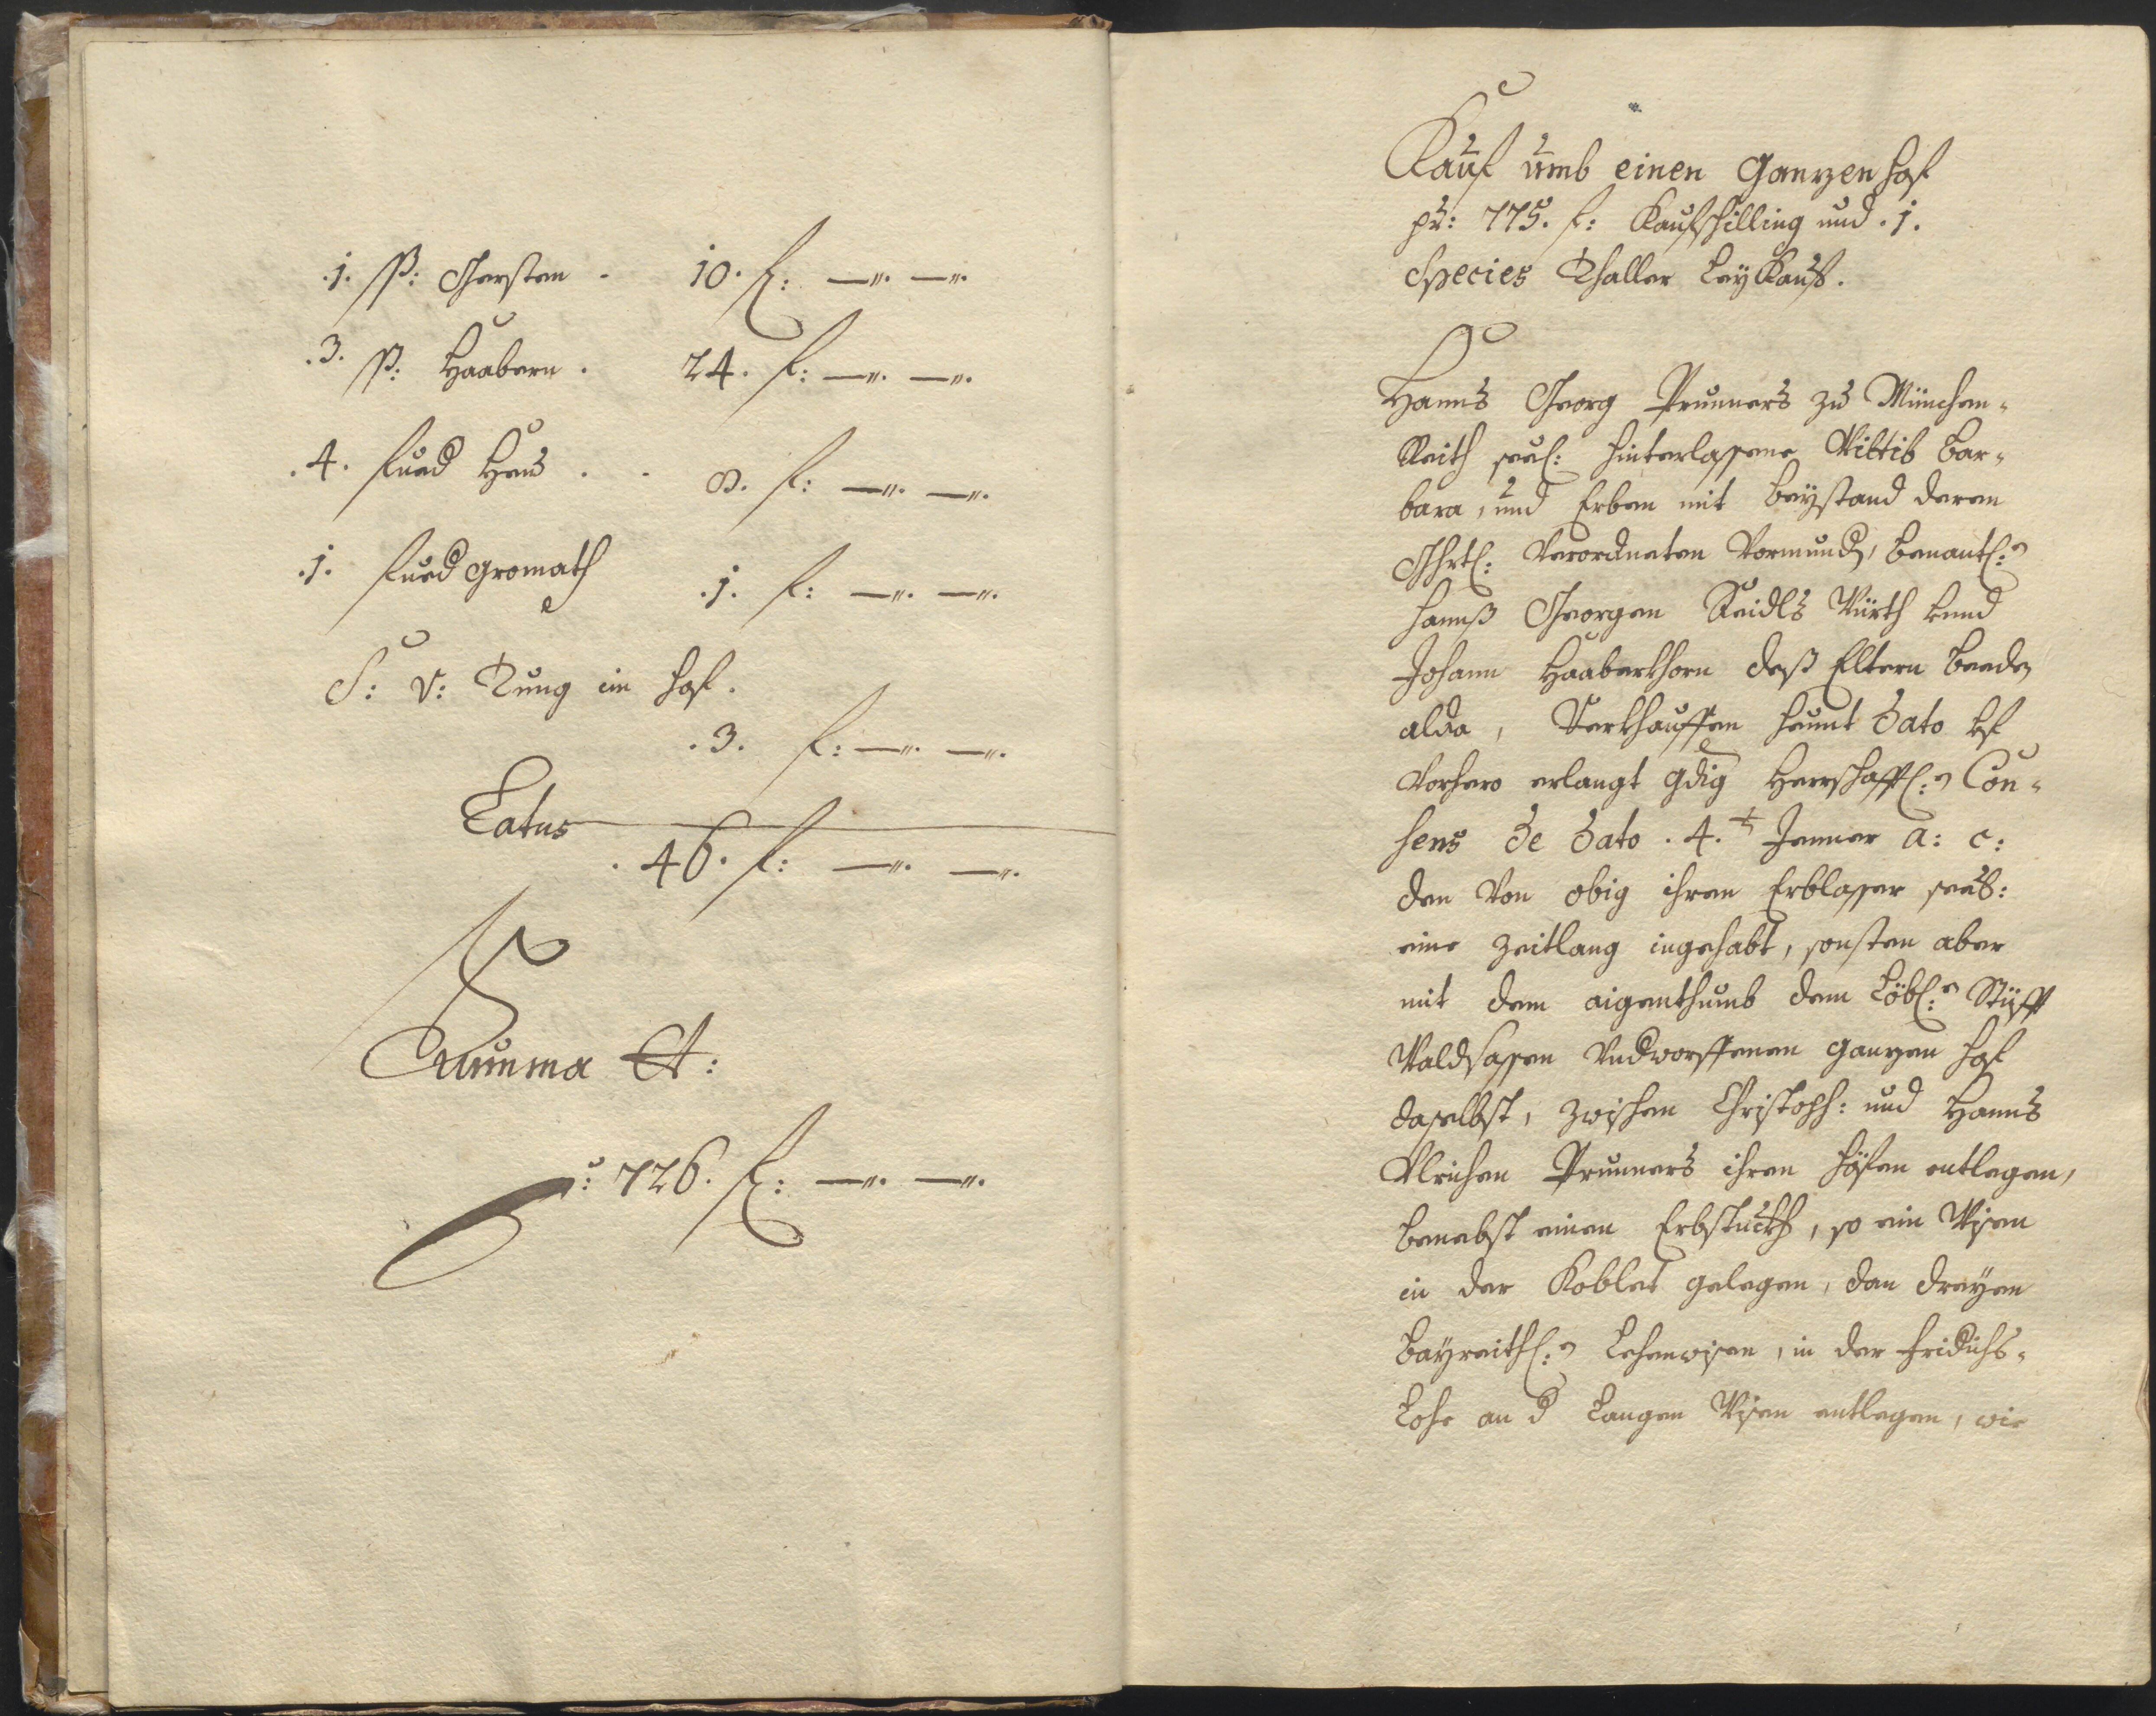 .1. ß: Gersten . 10. f: —". —".
.3. ß: Haabern . 24. f: —". —".
.4. fued Heu . . 8. f: —". —".
.1. fued Gromath .1. f: —". —".
S: v: Tung im Hof.
.3. f: —". —".
Latus
. 46. f: —". —".
Summa
: 726. f: —". —".
Kauf umb einen Ganzen Hof
pr: 775. f: Kaufschilling und .1.
Species Thaller Leykauf.
Hanns Georg Prunners zu München-
Reith seel: hinterlassene Wittib Bar-
bara, und Erben mit Beystand deren
Ghrtl: Verordneten Vormund, benantl:
Hannß Georgen Reidls Würth und
Johann Haaberkhorn deß Eltern beede
alda, Verkhauffen heunt dato
Vorhero erlangt gdig Herrschafftl: Con-
sens de dato .4.t Jenner a: c:
den Von obig ihren Erblasser seel:
eine Zeitlang ingehabt, sonsten aber
mit dem aigenthumb dem Löbl: Stüfft
Waldsassen Undworffenen ganzen Hof
daselbst, zwischen Christoph: und Hanns
Ulrichen Prunners ihren Höfen entlegen,
benebst einen Erbstuckh, so ein Wisen
in der Koblat gelegen, dan dreyen
Bayreithl: Lehenwisen, in der Fridrichs-
Lohe an d Langen Wisen entlegen, wie